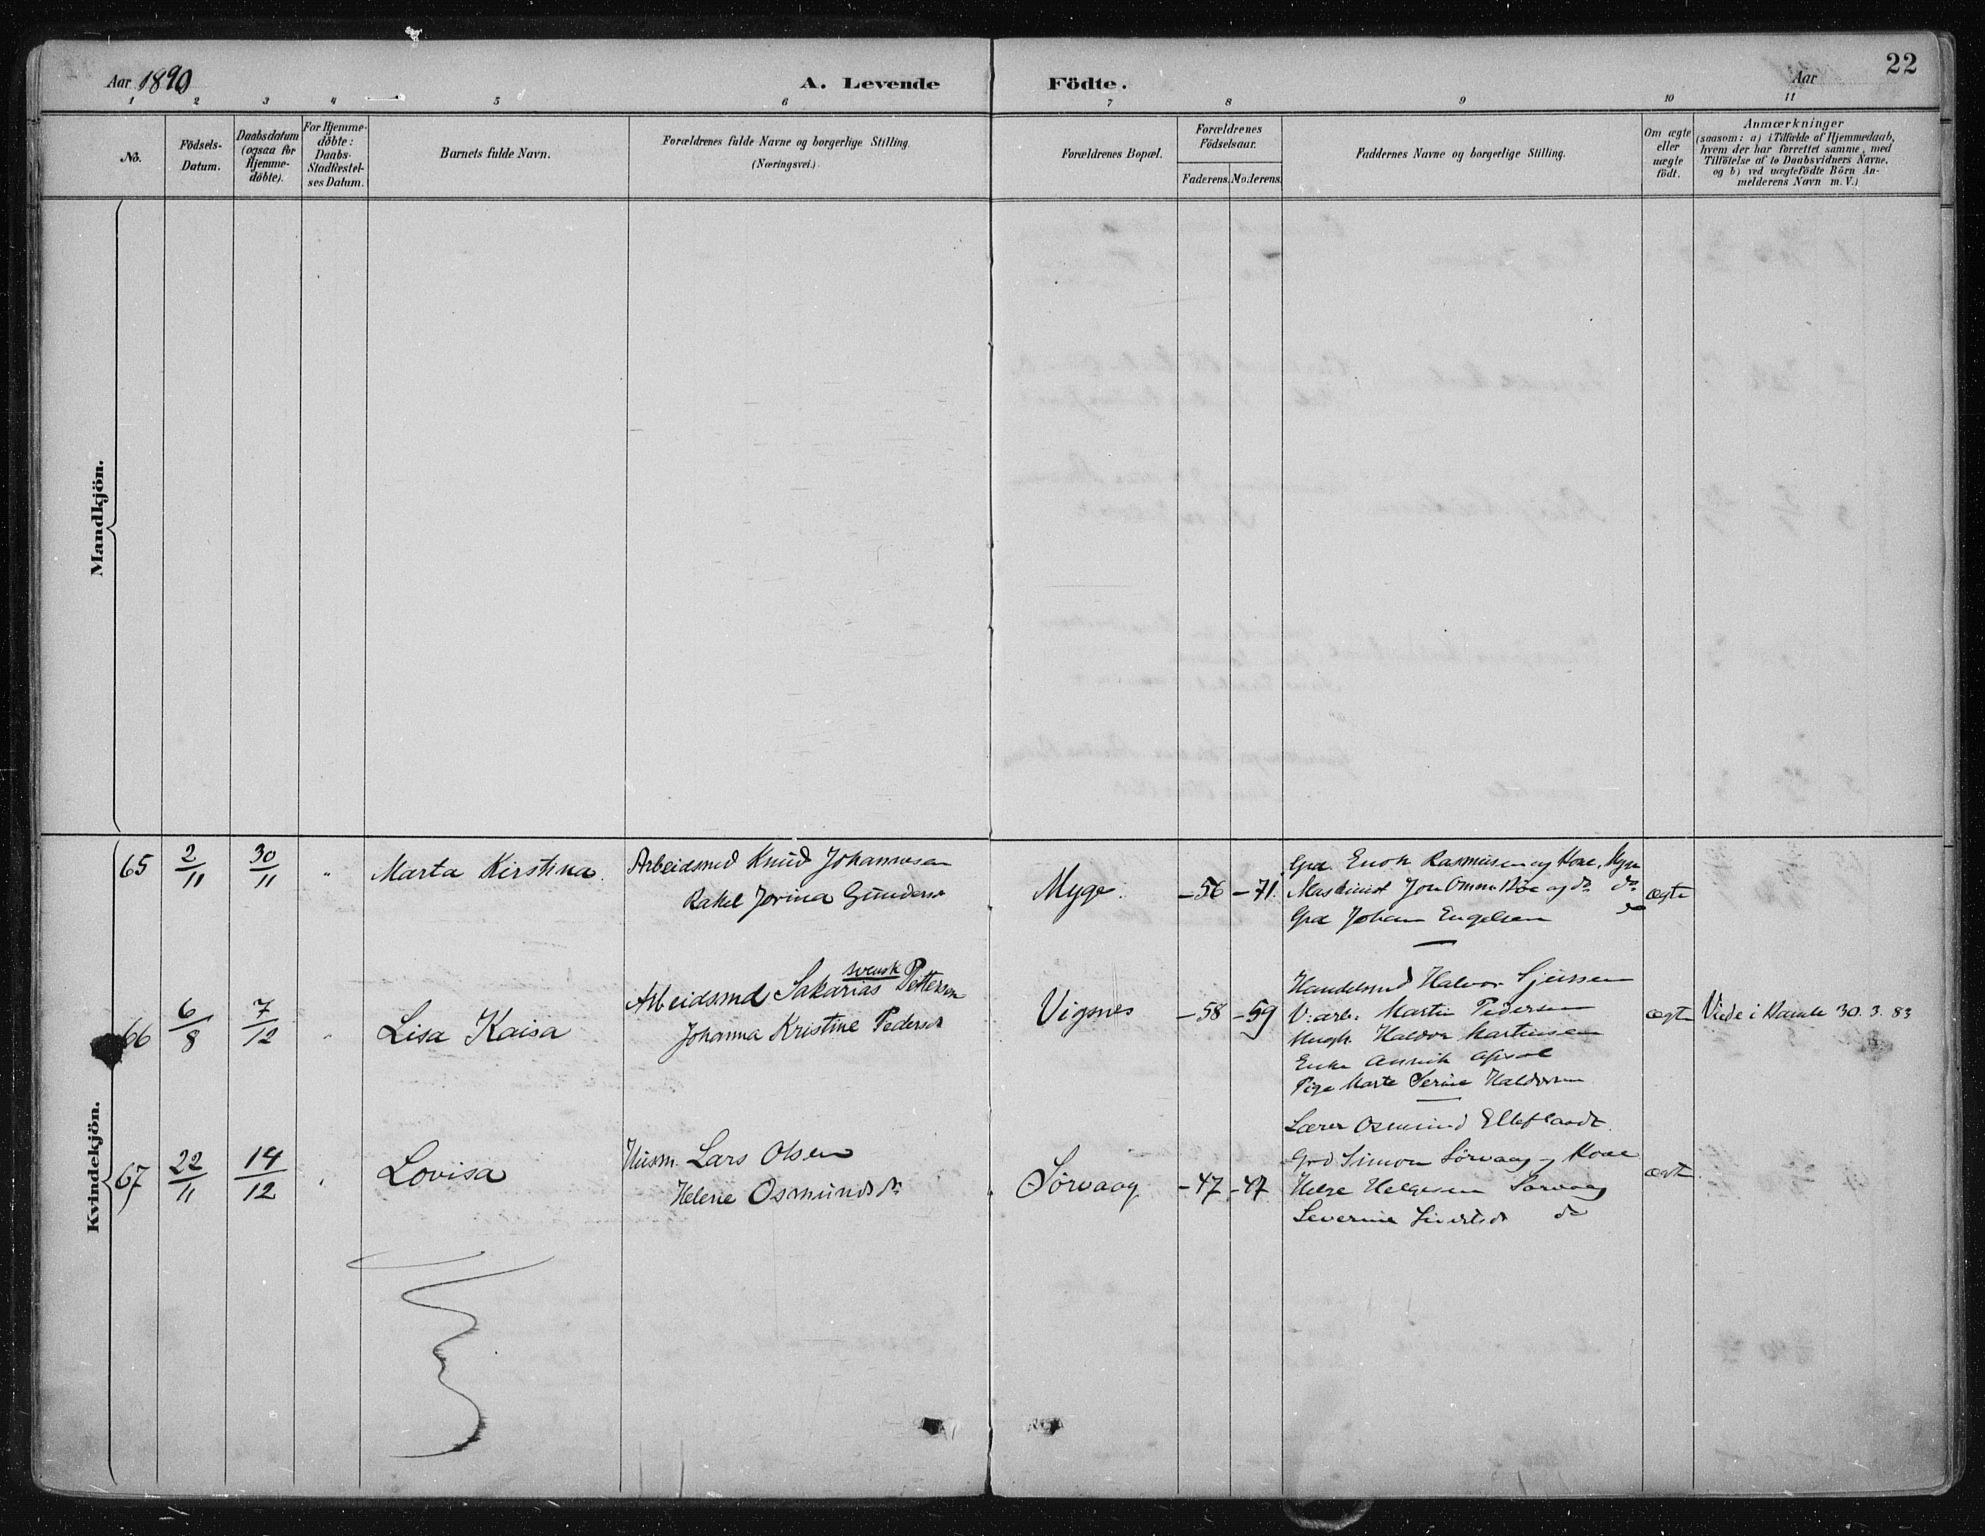 Aar 1890 A. Levende Födte. Aar 22
1 2 3 4 5 6 7 8 9 10 11
No.
Födsels-Datum.
Daabsdatum (ogsaa for Hjemme-döbte).
For Hjemme-döbte: Daabs-Stadfæstel-ses Datum.
Barnets fulde Navn.
Forældrenes fulde Navne og borgerlige Stilling.
(Næringsvei.)
Forældrenes Bopæl.
Forældrenes Födselsaar.
Faderens. Moderens.
Faddernes Navne og borgerlige Stilling.
Om ægte eller uægte födt.
Anmærkninger
(saasom: a) i Tilfælde af Hjemmedaab,
hvem der har forrettet samme, med
Tilföielse af to Daabsvidners Navne,
og b) ved uægtefödte Börn An-
melderens Navn m. V.)
Mandkjön.
Kvindekjön.
65 2/11 30/11 " Marta Kirstina. Arbeidsmd Knud Johannesen
Rakel Jorina Gundersd
Myge. -56 -71.
Grd. Enok Rasmussen og Kone, Myge
Maskinist Jon Omm Böe og do do
Grd Johan Engelsen do
ægte
66 6/8 7/12 " Lisa Kaisa
svensk
Arbeidsmd Sakarias Petterson
Johanna Kristine Pedersd
Vigsnes -58 -59
Handelsmd Halvor Sjursen
V. arb. Martin Pedersen
Ungk. Haldor Martinsen
Enke Annik
Pige Marte Serine Haldorsen
ægte Viede i Hamle 30.3.83
67 22/11 14/12 " Lovisa
Husm. Lars Olsen
Helene Osmundsdr
Sørvaag -47 -47
Lærer Osmund Elleflaadt.
Grd Simon Sørvaag og Kone
Helge Helgesen Sørvaag
Severine Sivertsdr do
ægte